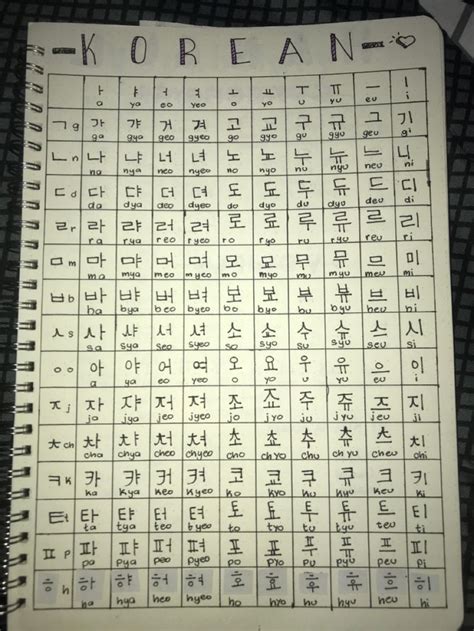 KOREAN
ㅏ ㅑ ㅓ ㅕ ㅗ ㅛ ㅜ ㅠ ㅡ ㅣ
a ya eo yeo o yo u yu eu i
ㄱ g 가 갸 거 겨 고 교 구 규 그 기
ga gya geo gyeo go gyo gu gyu geu gi
ㄴ n 나 냐 너 녀 노 뇨 누 뉴 느 니
na nya neo nyeo no nyo nu nyu neu ni
ㄷ d 다 댜 더 뎌 도 됴 두 듀 드 디
da dya deo dyeo do dyo du dyu deu di
ㄹ r 라 랴 러 려 로 료 루 류 르 리
ra rya reo ryeo ro ryo ru ryu reu ri
ㅁ m 마 먀 머 며 모 묘 무 뮤 므 미
ma mya meo myeo mo myo mu myu meu mi
ㅂ b 바 뱌 버 벼 보 뵤 부 뷰 브 비
ba bya beo byeo bo byo bu byu beu bi
ㅅ s 사 샤 서 셔 소 쇼 수 슈 스 시
sa sya seo syeo so syo su syu seu si
ㅇ o 아 야 어 여 오 요 우 유 으 이
a ya eo yeo o yo u yu eu i
ㅈ j 자 쟈 저 져 조 죠 주 쥬 즈 지
ja jya jeo jyeo jo jyo ju jyu jeu ji
ㅊ ch 차 챠 처 쳐 초 쵸 추 츄 츠 치
cha chya cheo chyeo cho chyo chu chyu cheu chi
ㅋ k 카 캬 커 켜 코 쿄 쿠 큐 크 키
ka kya keo kyeo ko kyo ku kyu keu ki
ㅌ t 타 탸 터 텨 토 툐 투 튜 트 티
ta tya teo tyeo to tyo tu tyu teu ti
ㅍ p 파 퍄 퍼 펴 포 표 푸 퓨 프 피
pa pya peo pyeo po pyo pu pyu peu pi
ㅎ h 하 햐 허 혀 호 효 후 휴 흐 히
ha hya heo hyeo ho hyo hu hyu heu hi